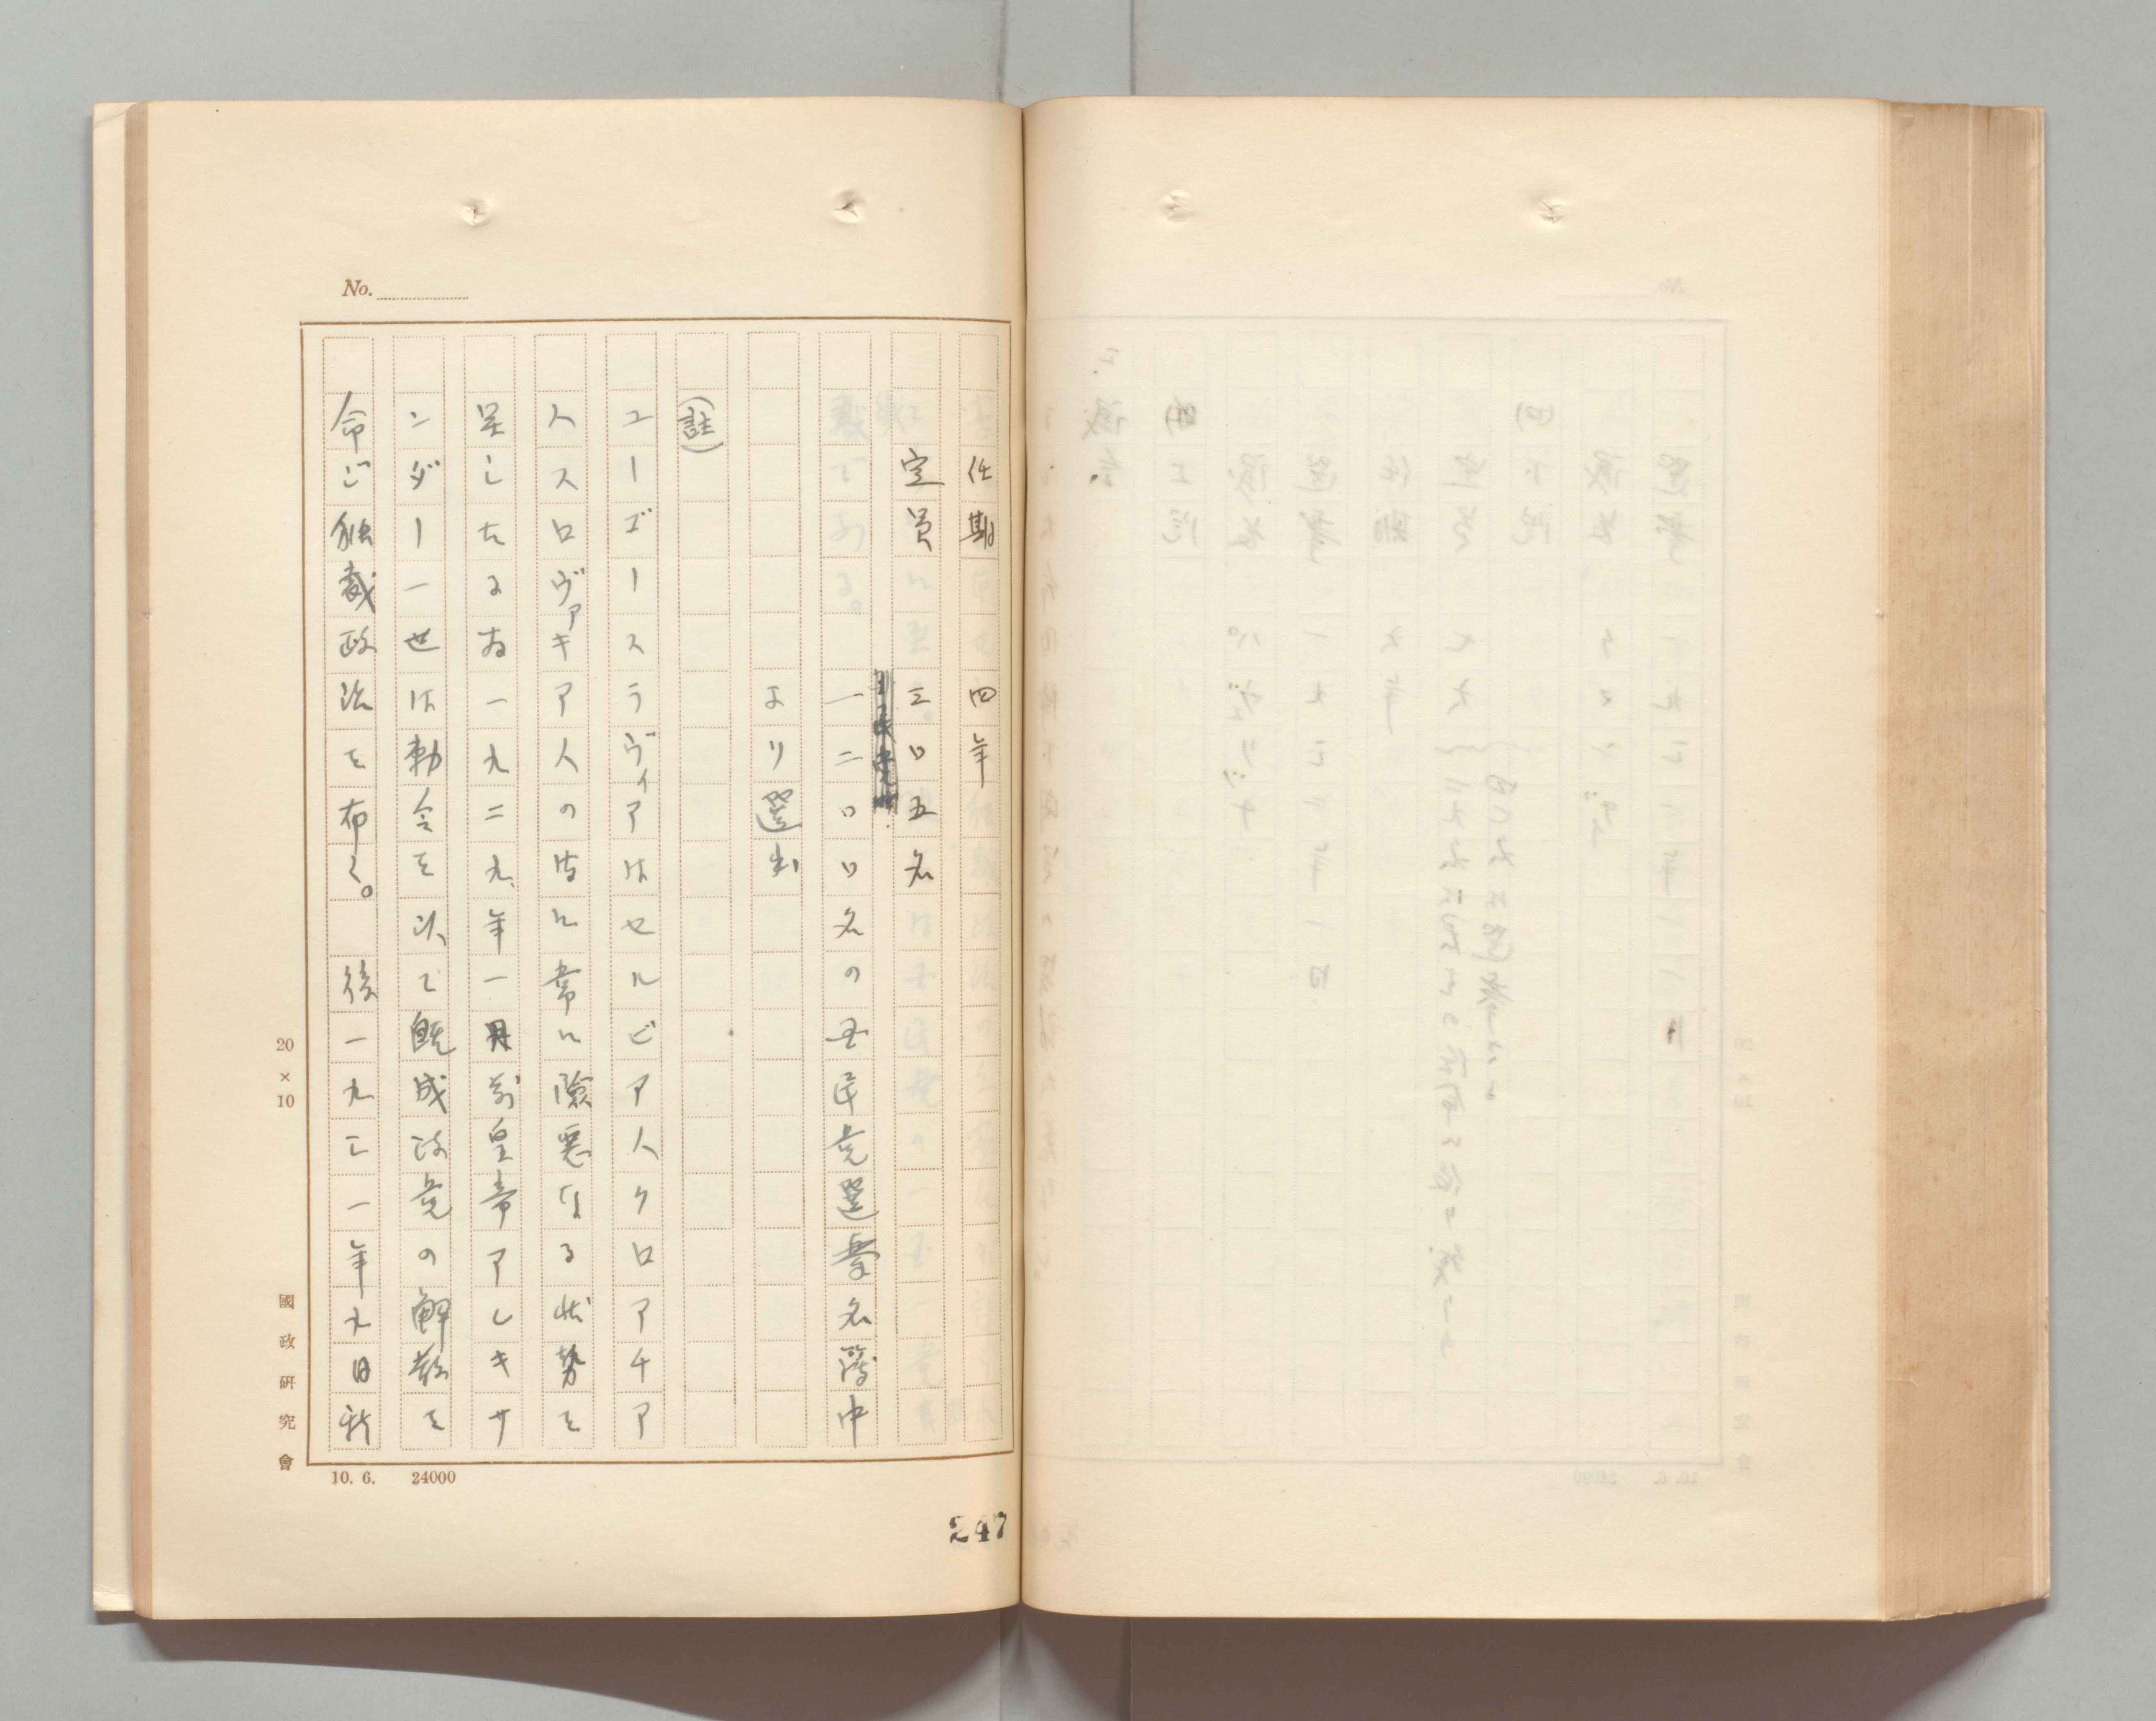 No.
任期　四年
定員　三〇五名
一二〇〇名の国民党選挙名簿中
より選出
(註)
ユーゴースラヴィアはセルビア人クロアチア
人スロヴァキア人の為に常に険悪なる状勢を
呈したる為一九二九年一月前皇帝アレキサ
ンダー一世は勅令を以て既成政党の解散を
命じ独裁政治を布く。　後一九三一年九月新
20×10
國政研究會
10. 6.　24000
247